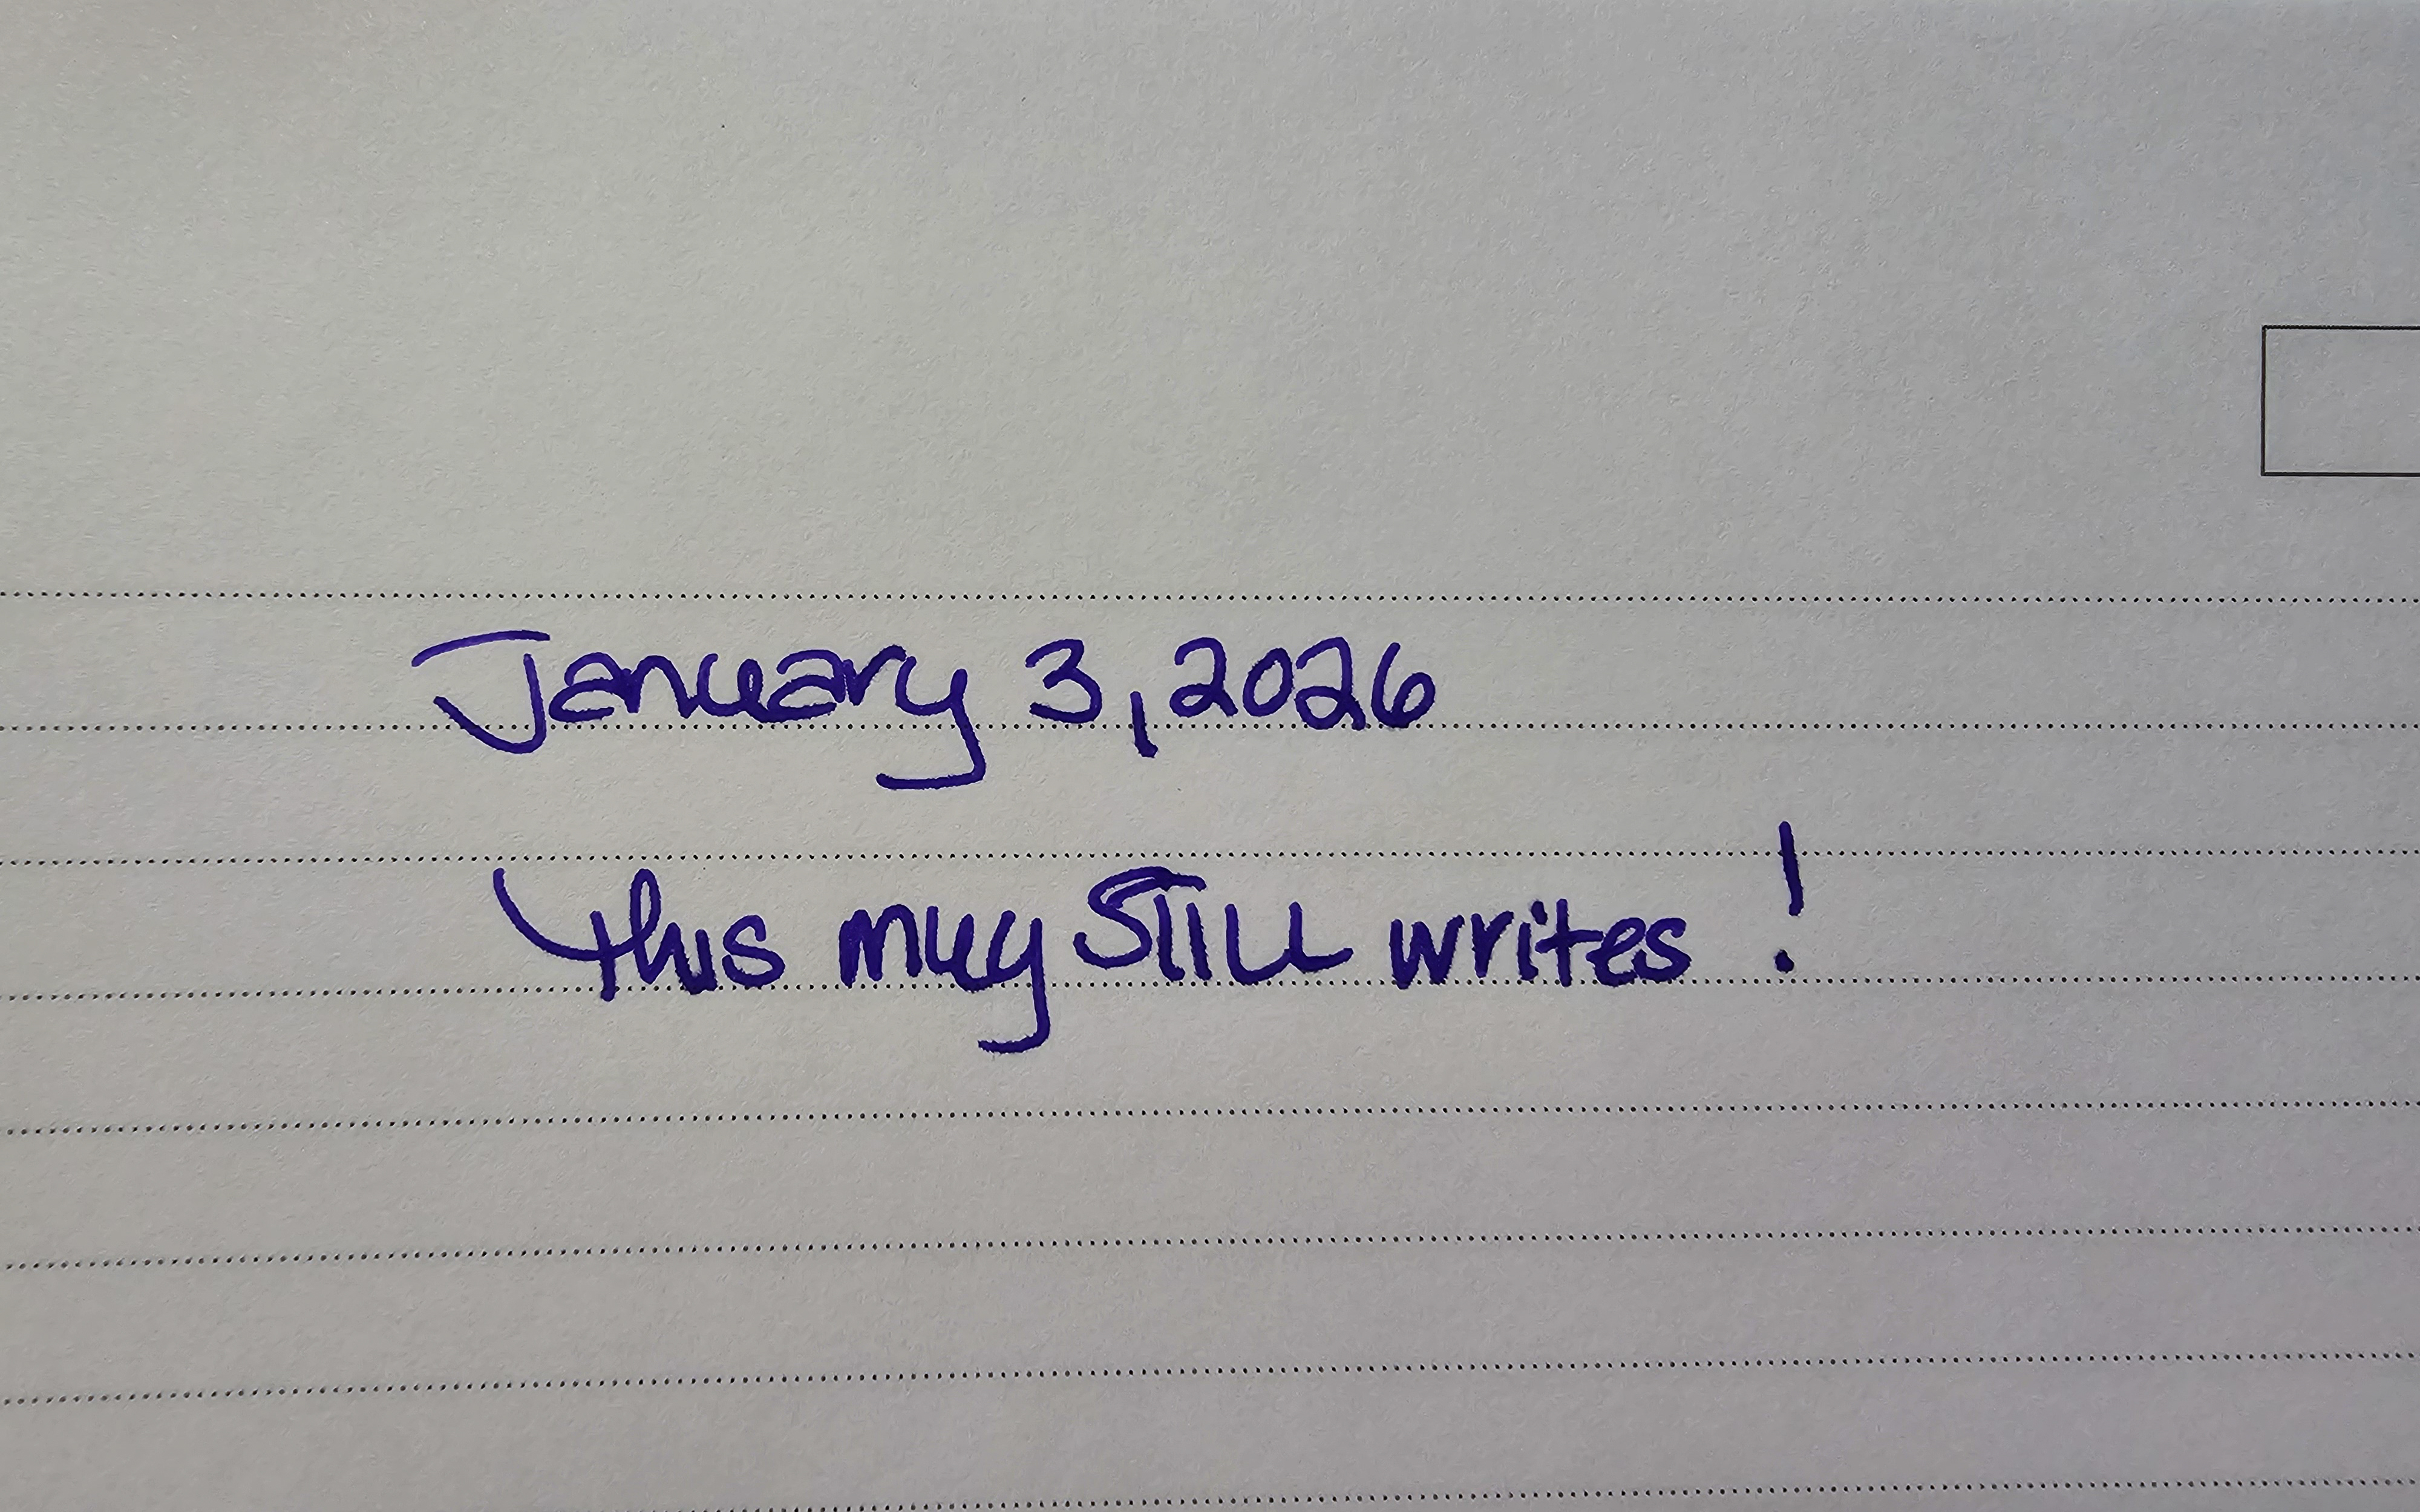 January 3, 2026
This mug STILL writes!